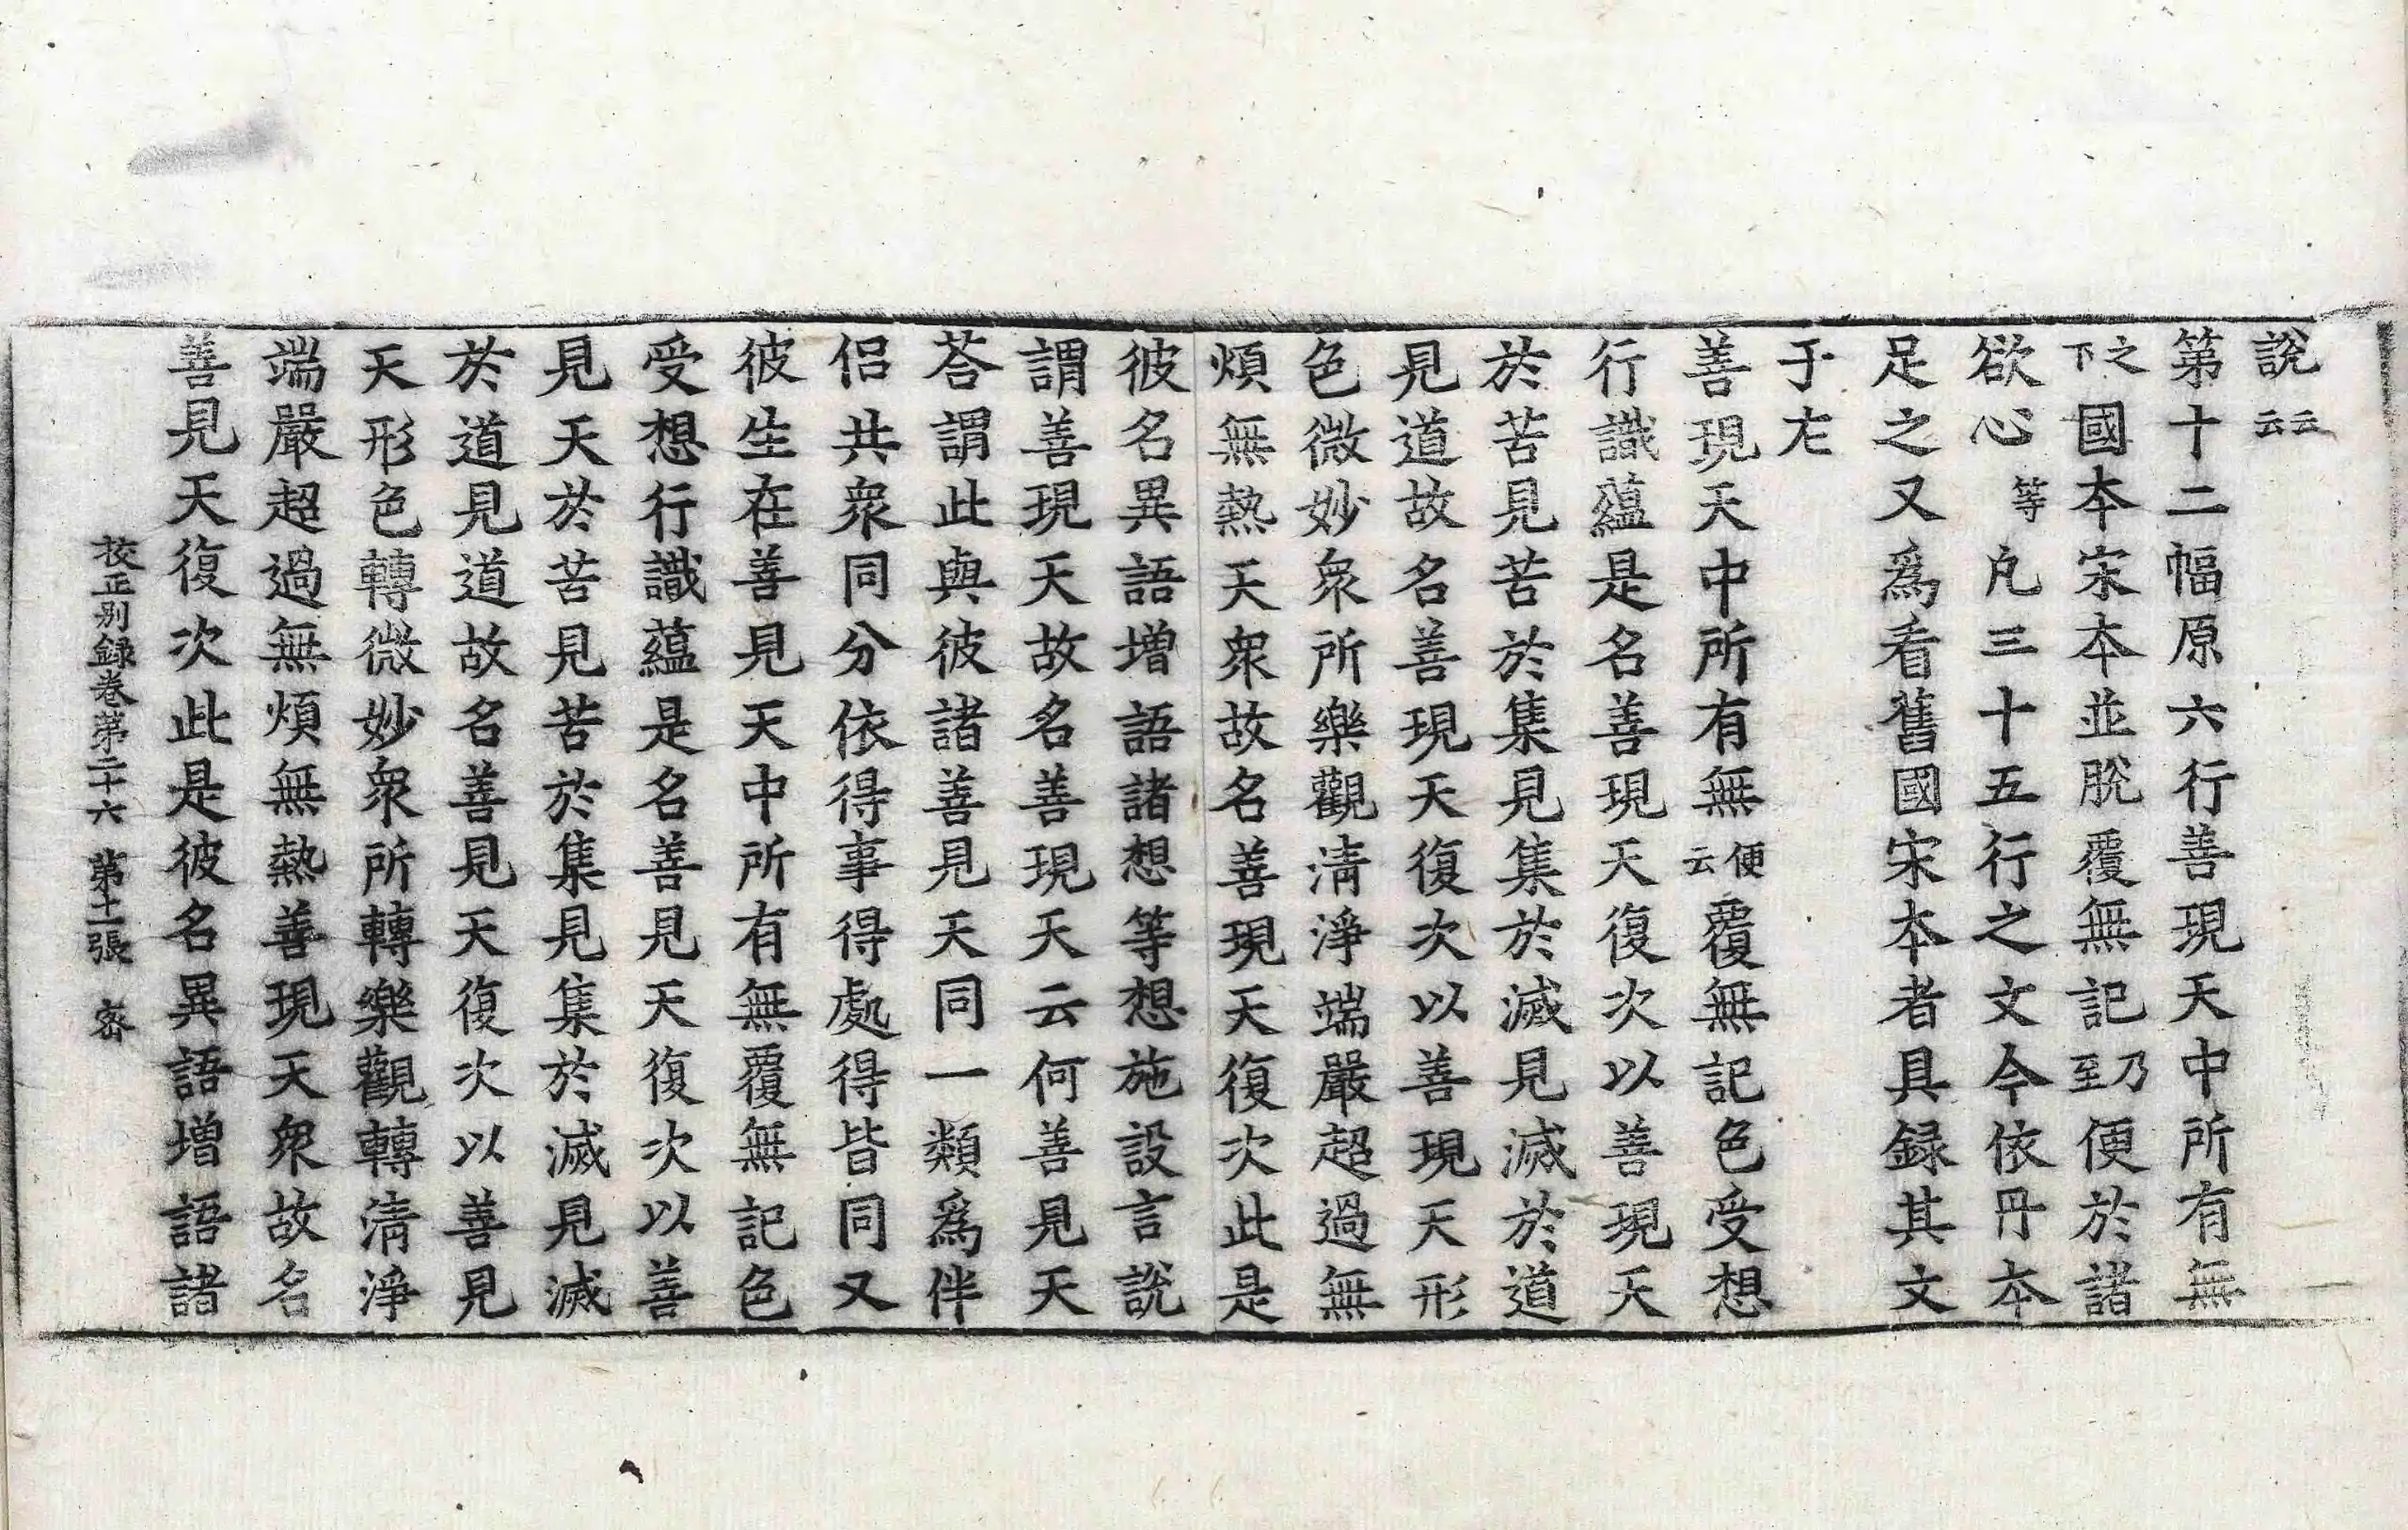 說云云
第十二幅原六行善現天中所有無
之下國本宋本並脫覆無記乃至便於諸
欲心等凡三十五行之文今依丹本
足之又爲看舊國宋本者具録其文
于左
善現天中所有無便云覆無記色受想
行識蘊是名善現天復次以善現天
於苦見苦於集見集於滅見滅於道
見道故名善現天復次以善現天形
色微妙衆所樂觀清淨端嚴超過無
煩無熱天衆故名善現天復次此是
彼名異語增語諸想等想施設言說
謂善現天故名善現天云何善見天
荅謂此與彼諸善見天同一類爲伴
侣共衆同分依得事得處得皆同又
彼生在善見天中所有無覆無記色
受想行識蘊是名善見天復次以善
見天於苦見苦於集見集於滅見滅
於道見道故名善見天復次以善見
天形色轉微妙衆所轉樂觀轉清淨
端嚴超過無煩無熱善現天衆故名
善見天復次此是彼名異語增語諸
校正别録卷第二十六 第十二張 密